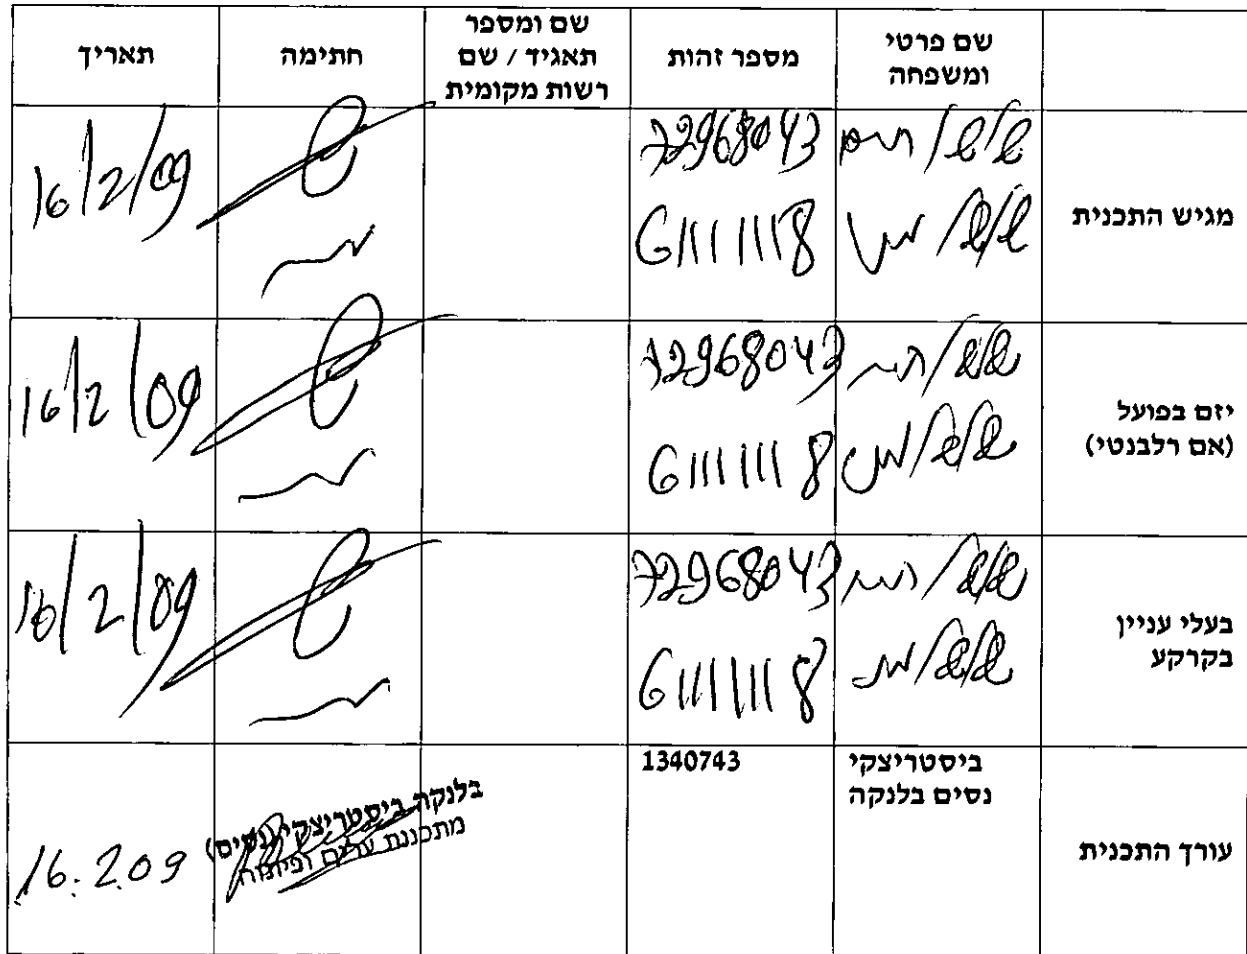 שם פרטי ומשפחה
מספר זהות
שם ומספר תאגיד / שם רשות מקומית
חתימה
תאריך
מגיש התכנית
72968043
61111118
16/2/09
יזם בפועל
(אם רלבנטי)
72968043
61111118
16/2/09
בעלי עניין
בקרקע
72968043
61111118
16/2/09
עורך התכנית
ביסטריצקי
נסים בלנקה
1340743
בלנקה ביסטריצקי (נסים)
מתכננת ערים ופיתוח
16.2.09